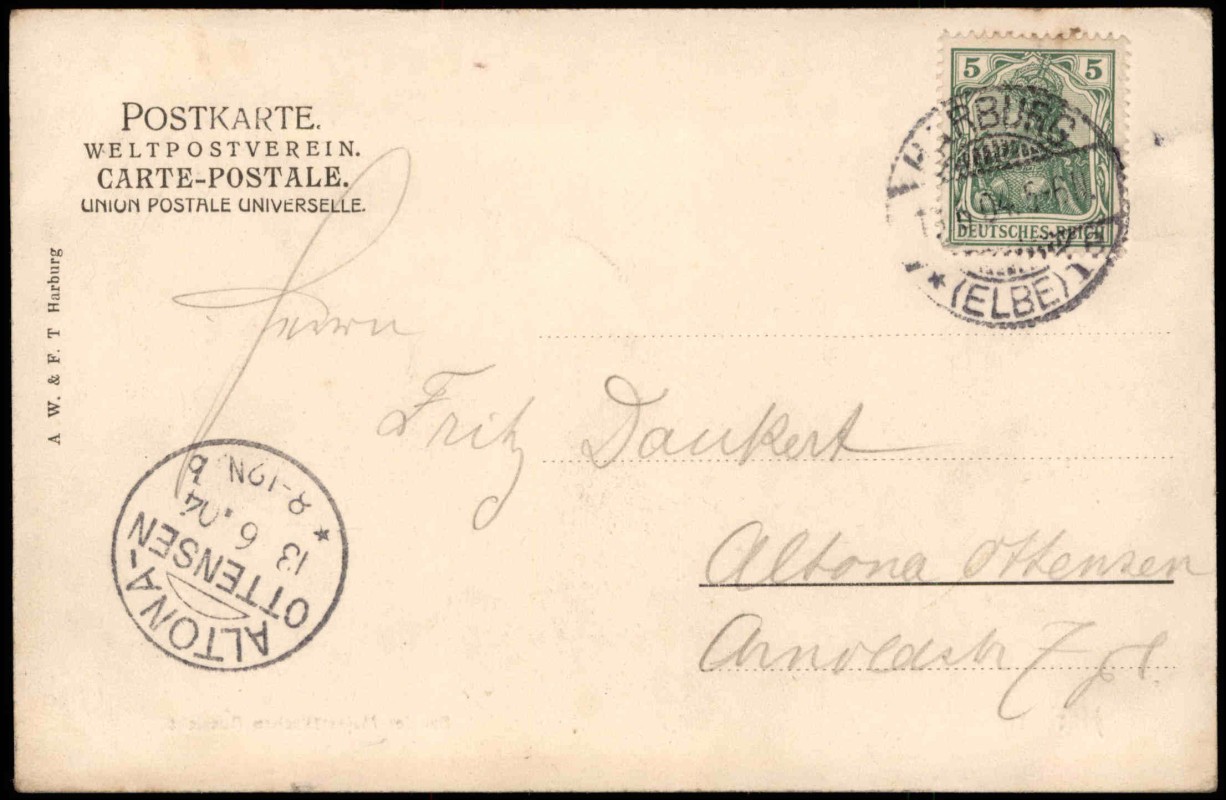 POSTKARTE.
WELTPOSTVEREIN.
CARTE-POSTALE.
UNION POSTALE UNIVERSELLE.
A W. & F. T Harburg
5 5
DEUTSCHES REICH
HARBURG
04. 5-6N
* (ELBE) 1
Herrn
Fritz Dankert
Altona Ottensen
Arnoldstr 7
ALTONA-
OTTENSEN
* 13 6.04
8-12N b